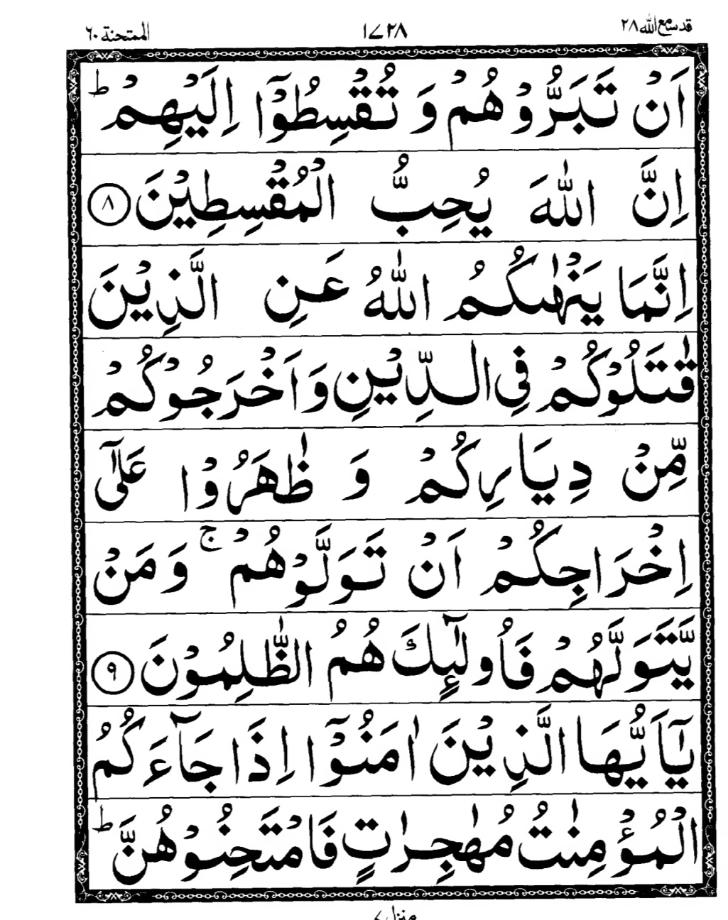 قد سمع الله ٢٨
١٧٢٨
الممتحنة ٦٠
اَنْ تَبَرُّوْهُمْ وَ تُقْسِطُوْۤا اِلَيْهِمْ ؕ
اِنَّ اللّٰهَ يُحِبُّ الْمُقْسِطِيْنَ ۝٨
اِنَّمَا يَنْهٰىكُمُ اللّٰهُ عَنِ الَّذِيْنَ
قٰتَلُوْكُمْ فِى الدِّيْنِ وَاَخْرَجُوْكُمْ
مِّنْ دِيَارِكُمْ وَ ظٰهَرُوْا عَلٰۤى
اِخْرَاجِكُمْ اَنْ تَوَلَّوْهُمْ ۚ وَمَنْ
يَّتَوَلَّهُمْ فَاُولٰٓئِكَ هُمُ الظّٰلِمُوْنَ ۝٩
يٰۤاَيُّهَا الَّذِيْنَ اٰمَنُوْۤا اِذَا جَآءَكُمُ
الْمُؤْمِنٰتُ مُهٰجِرٰتٍ فَامْتَحِنُوْهُنَّ ؕ
منزل ٧